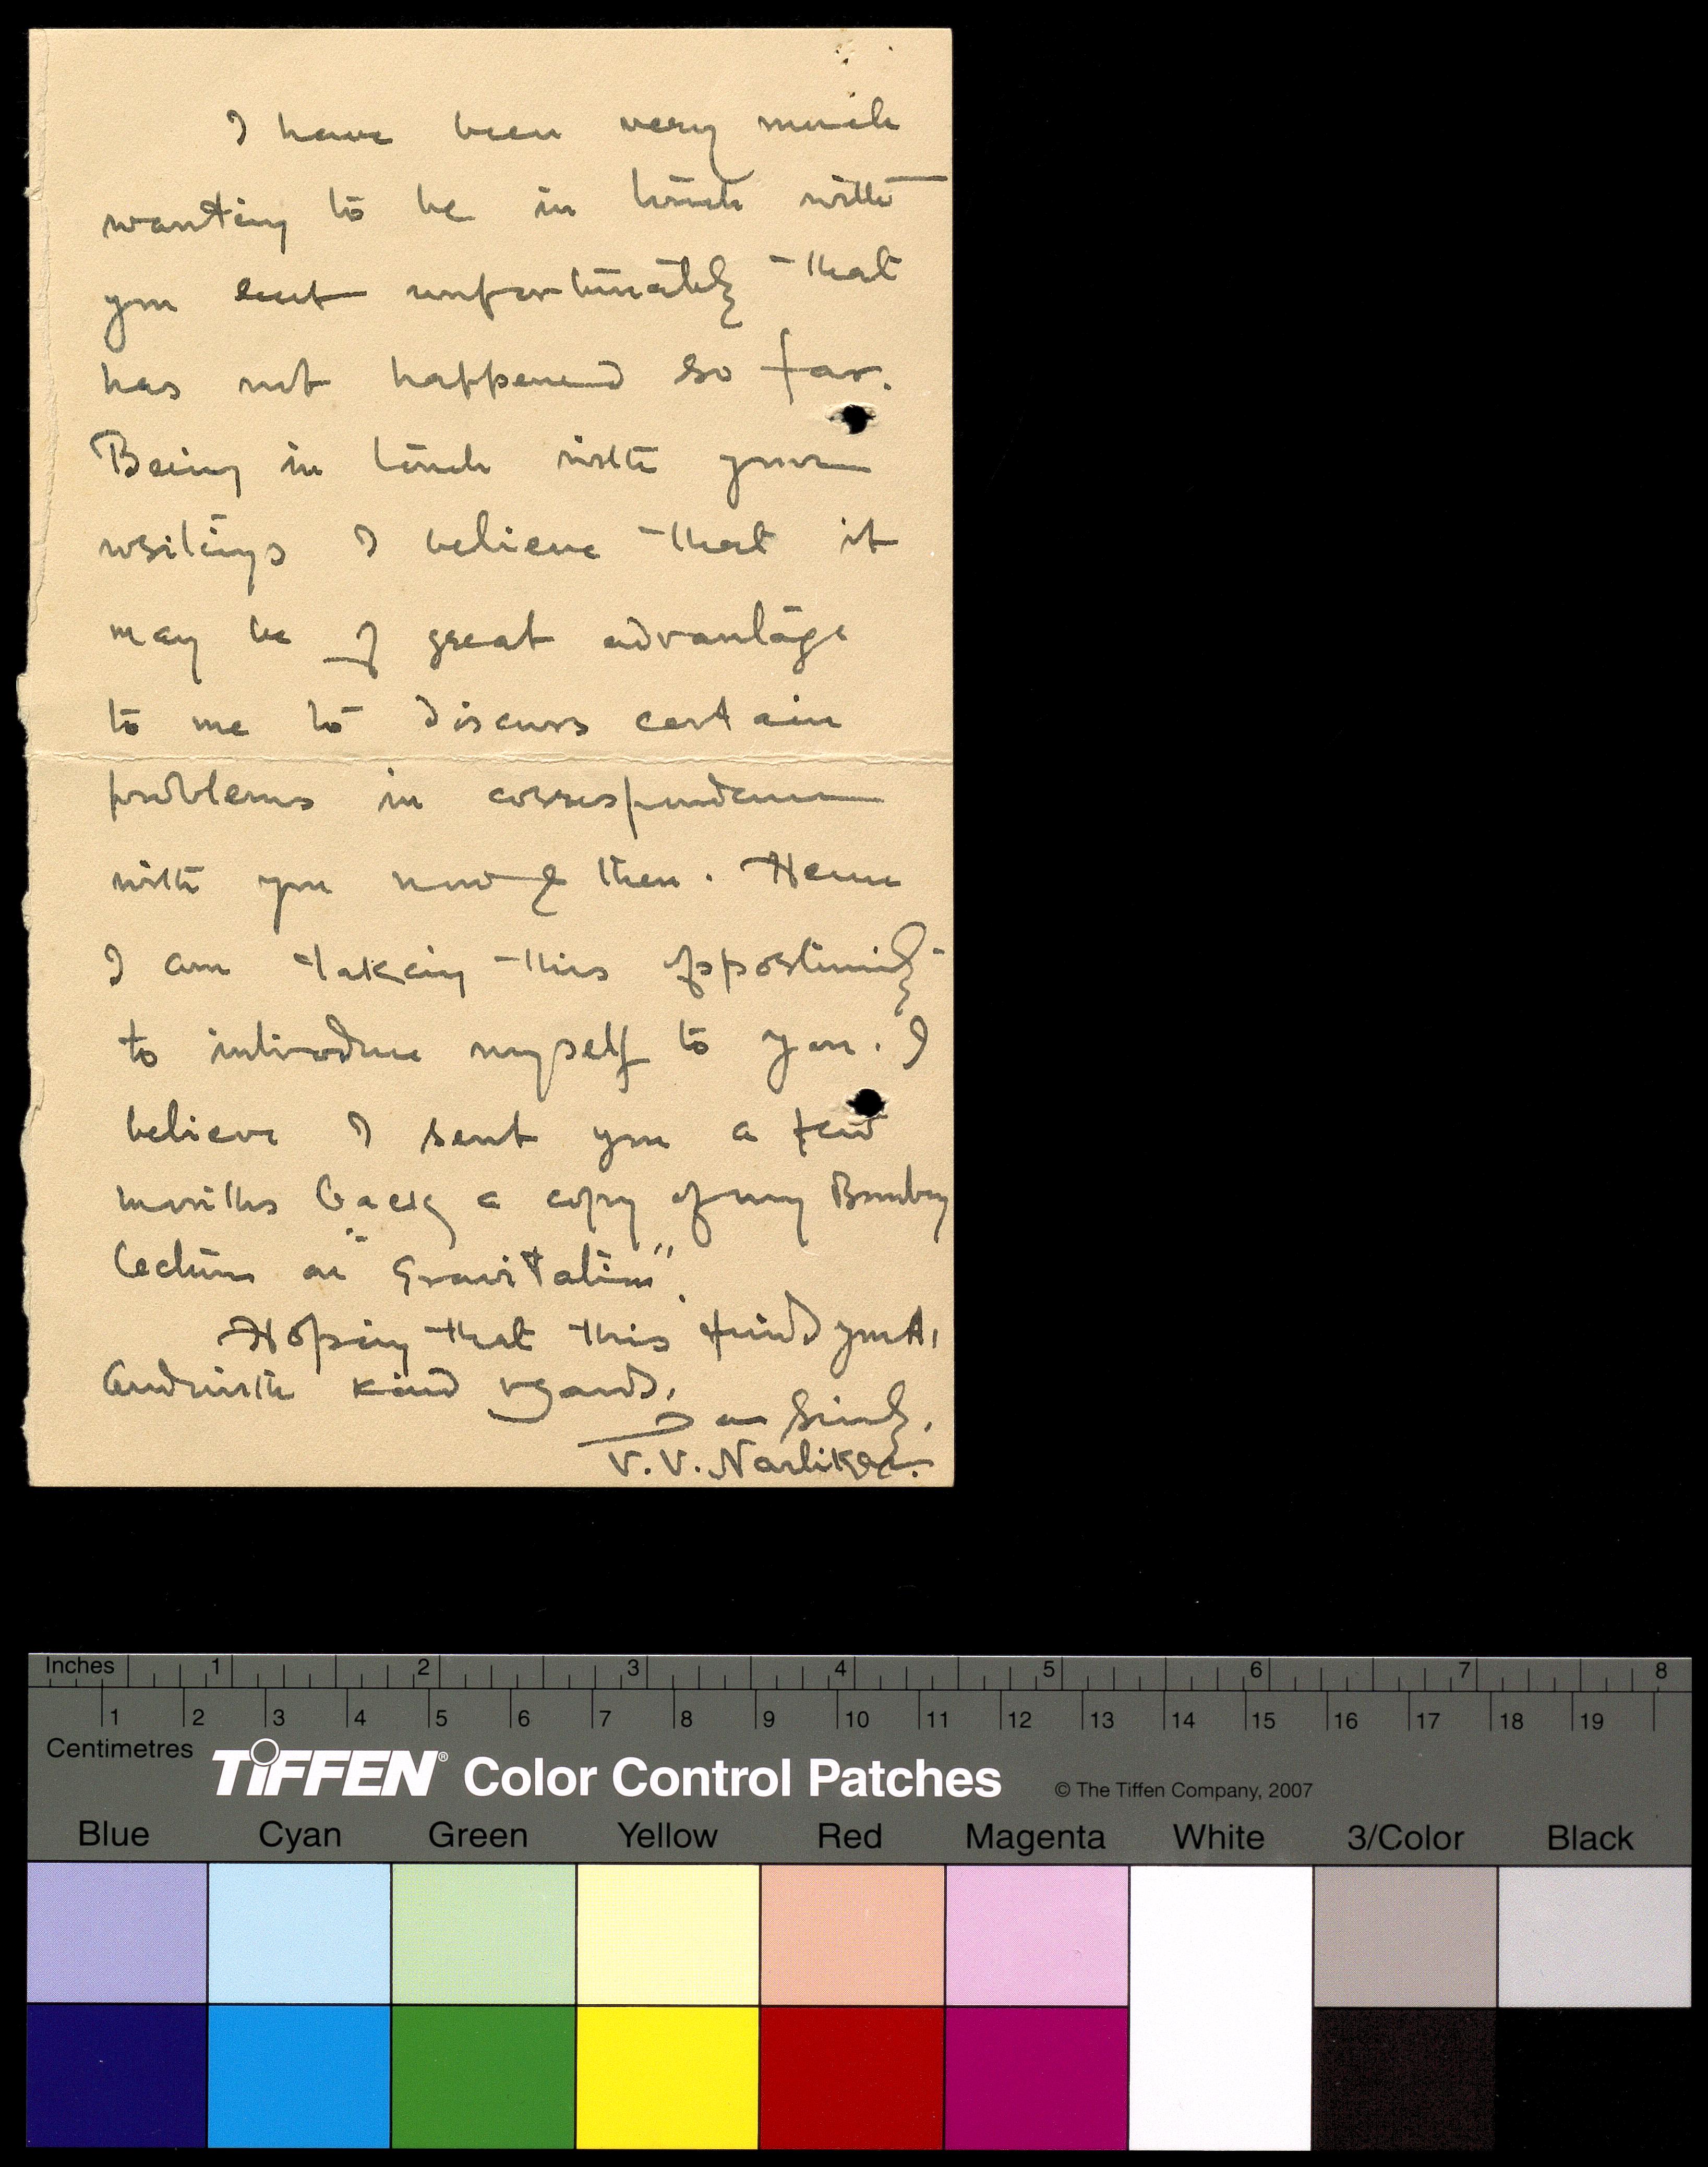 I have been very much
wanting to be in touch with
you but unfortunately that
has not happened so far.
Being in touch with your
writings I believe that it
may be of great advantage
to me to discuss certain
problems in correspondence
with you now & then. Hence
I am taking this opportunity
to introduce myself to you. I
believe I sent you a few
months back a copy of my Bombay
lectures on "Gravitation".
Hoping that this finds you
and with kind regards,
I am Sincerely,
V.V. Narlikar.
Inches 1 2 3 4 5 6 7 8
1 2 3 4 5 6 7 8 9 10 11 12 13 14 15 16 17 18 19
Centimetres
TIFFEN® Color Control Patches © The Tiffen Company, 2007
Blue Cyan Green Yellow Red Magenta White 3/Color Black